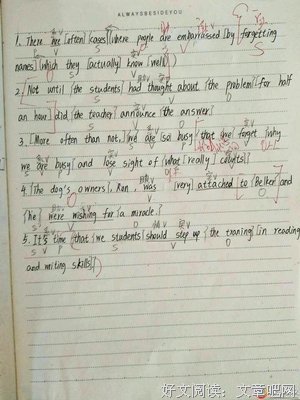 ALWAYSBESIDEYOU
1. There are [often] cases [where people are embarrassed [by [forgetting
names] [which they [actually] know [well].
2. Not until [the students] had thought about {the problem} [for half
an hour] did [the teacher] announce [the answer]
3. [More often than not, we are [so busy] that we forget [why
we are busy] and lose sight of [what [really] counts]
4. [The dog's owners], Ron, was [very] attached [to {Belker} and
{he} were wishing for {a miracle.}
5. It's time that {we students} should step up {the traning} [in reading
and writing skills]
好文阅读：文章吧网